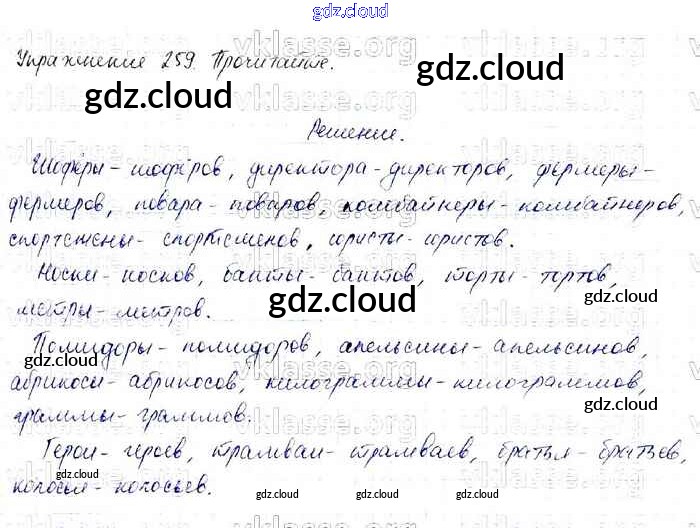 gdz.cloud
vklasse.org vklasse.org
Упражнение 259. Прочитайте.
gdz.cloud gdz.cloud
Решение.
Шофёры - шофёров, директора - директоров, фермеры -
фермеров, повара - поваров, комбайнеры - комбайнеров,
спортсмены - спортсменов, юристы - юристов.
Носки - носков, банты - бантов, торты - тортов,
gdz.cloud gdz.cloud
метры - метров.
Помидоры - помидоров, апельсины - апельсинов,
gdz.cloud
абрикосы - абрикосов, килограммы - килограммов,
gdz.cloud
граммы - граммов.
Герои - героев, трамваи - трамваев, братья - братьев,
gdz.cloud gdz.cloud
колосья - колосьев.
gdz.cloud gdz.cloud gdz.cloud